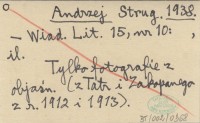 Andrzej Strug. 1938.
— Wiad. Lit. 15, nr. 10:
il.
Tylko fotografie z
objaśn. (z Tatr i Zakopanego
z r. 1912 i 1913).